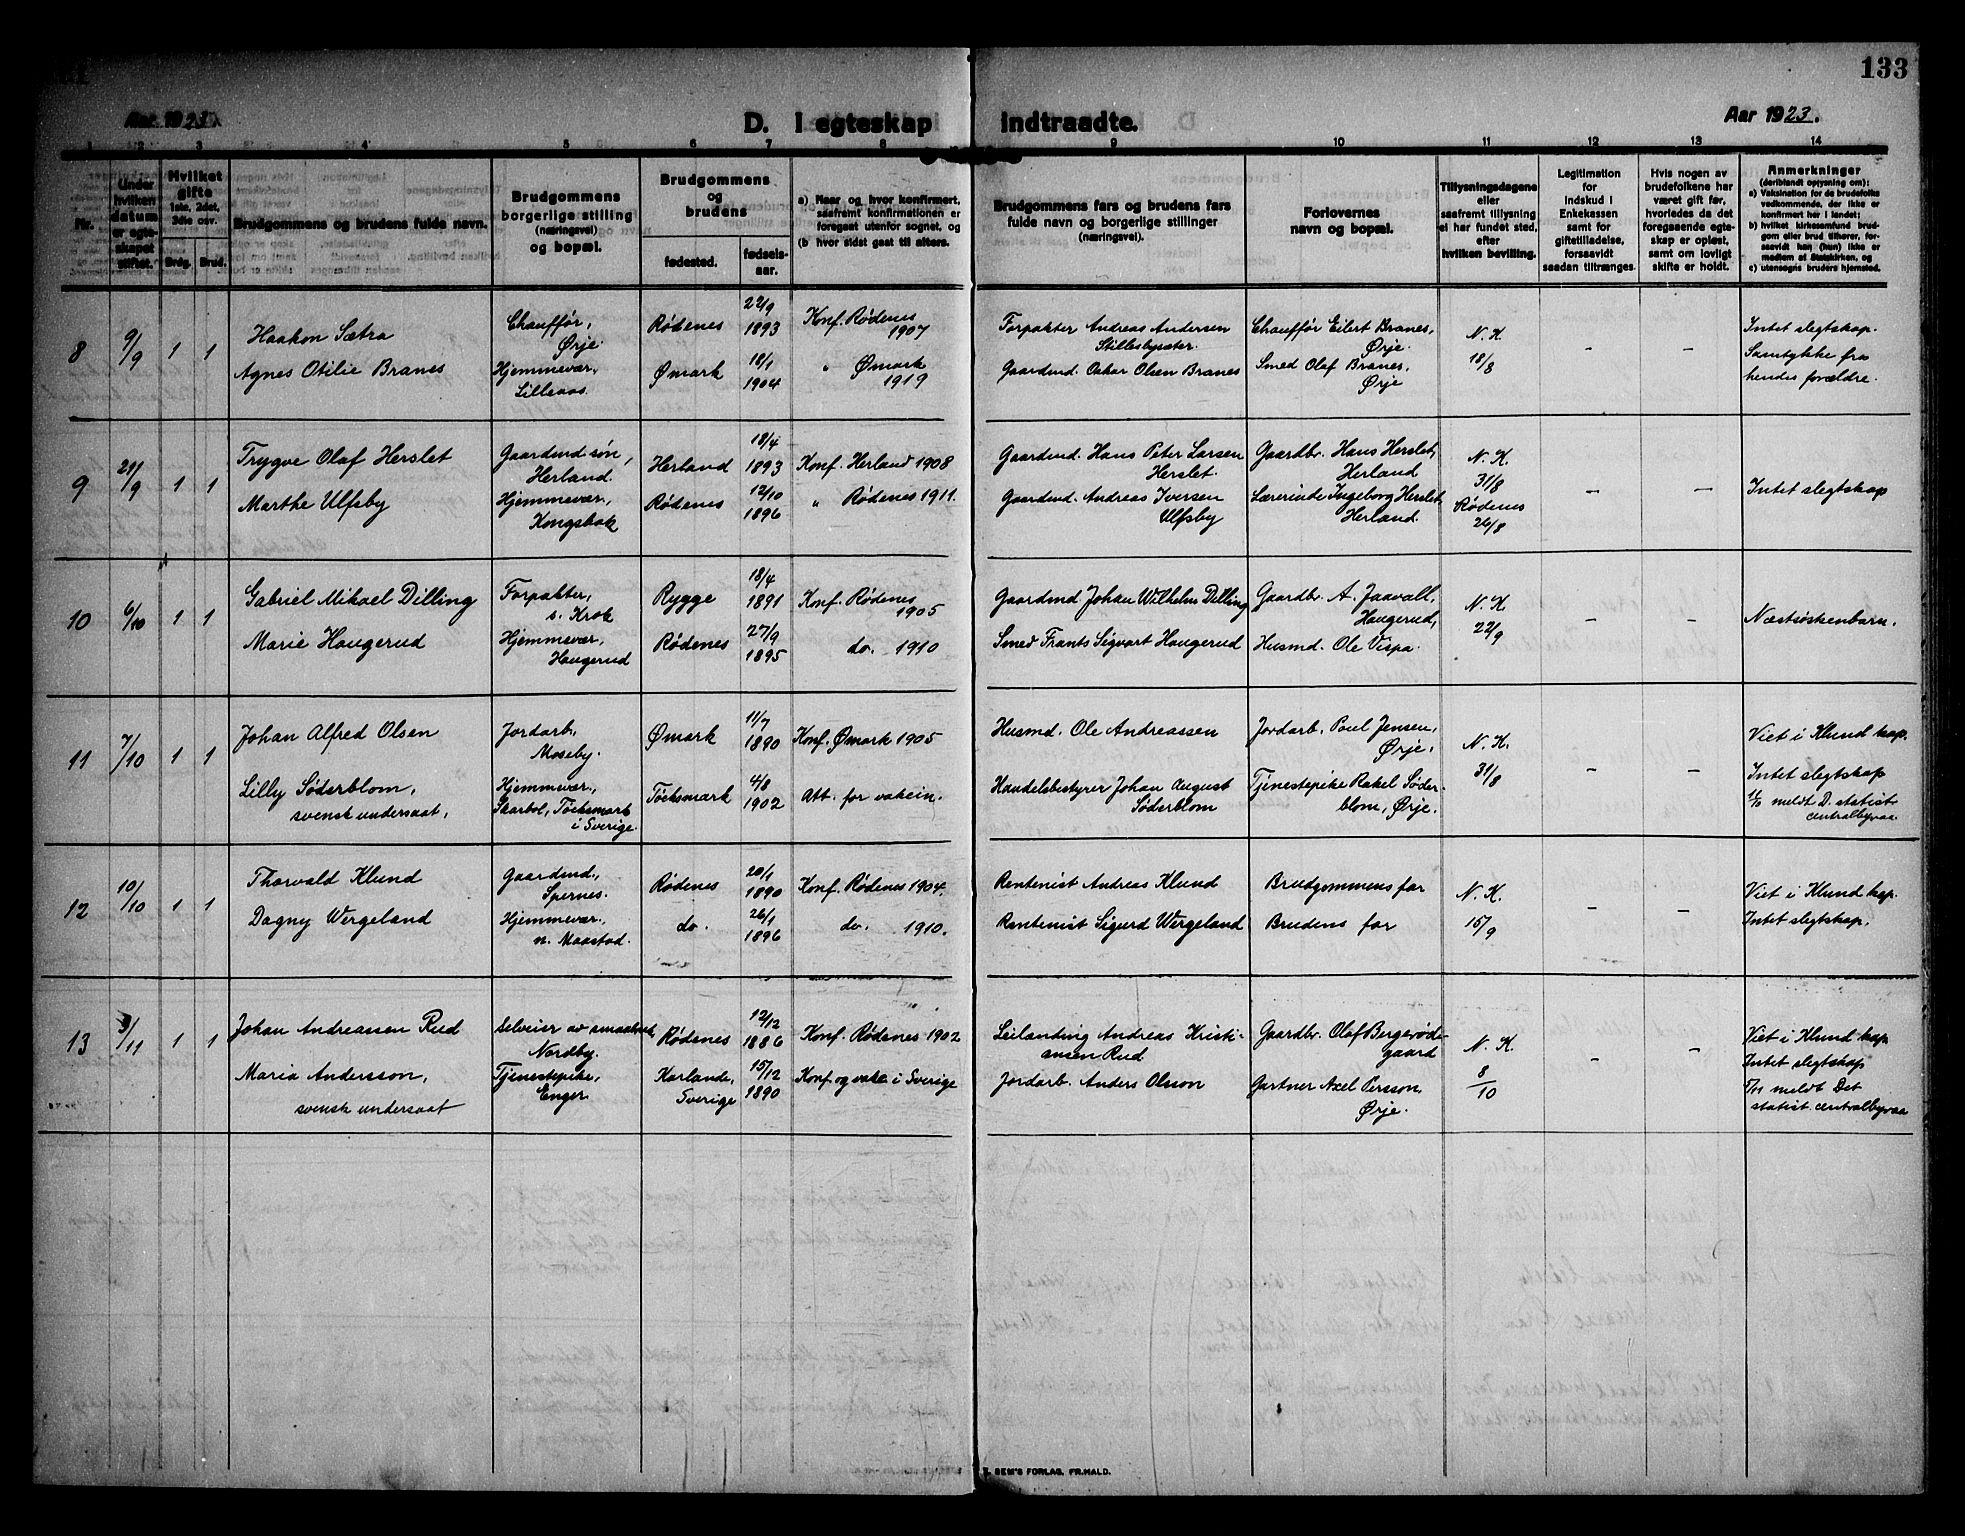 133
Aar 1923
D. I egteskap indtraadte.
Aar 1923.
1 2 3 4 5 6 7 8 9 10 11 12 13 14
Nr.
Under hvilken datum er egteskapet stiftet.
Hvilket gifte
1ste, 2det, 3die osv.
Brdg. Brud.
Brudgommens og brudens fulde navn.
Brudgommens borgerlige stilling (næringsvei) og bopæl.
Brudgommens og brudens
fødested.
fødselsaar.
a) Naar og hvor konfirmert, saafremt konfirmationen er foregaat utenfor sognet, og
(b hvor sidst gaat til alters.
Brudgommens fars og brudens fars fulde navn og borgerlige stillinger (næringsvei).
Forlovernes navn og bopæl.
Tillysningsdagene eller saafremt tillysning ei har fundet sted, efter hvilken bevilling.
Legitimation for indskud i Enkekassen samt for giftetilladelse, forsaavidt saadan tiltrænges.
Hvis nogen av brudefolkene har været gift før, hvorledes da det foregaaende egteskap er opløst, samt om lovligt skifte er holdt.
Anmerkninger
(deriblandt oplysning om):
a) Vaksination for de brudefolks vedkommende, der ikke er konfirmert her i landet;
b) hvilket kirkesamfund brudgom eller brud tilhører, forsaavidt han (hun) ikke er medlem af Statskirken, og
c) utensogns bruders hjemsted.
8 9/9 1 1
Haakon Sætra
Chauffør, Ørje.
Rødenes 22/9 1893
Konf. Rødenes 1907
Forpakter Andreas Andersen Stillesbysæter.
Chauffør Eilert Branes, Ørje.
N. K. 18/8
-
-
Intet slegtskap.
Samtykke fra hendes forældre.
Agnes Otilie Branes
Hjemmevær., Lilleaas.
Ømark 18/1 1904
" Ømark 1919
Gaardmd. Oskar Olsen Branes
Smed Olaf Branes, Ørje
9 21/9 1 1
Trygve Olaf Herslet
Gaardmd søn, Herland.
Herland 18/4 1893
Konf. Herland 1908
Gaardmd. Hans Peter Larsen Herslet.
Gaardbr. Hans Herslet, Herland
N. K. 31/8
Rødenes 26/8
-
-
Intet slegtskap
Marthe Ulfsby
Hjemmevær., Kongsbok
Rødenes 12/10 1896
" Rødenes 1911.
Gaardmd. Andreas Iversen Ulfsby
Lærerinde Ingeborg Herslet, Herland.
10 6/10 1 1
Gabriel Mikael Dilling
Forpakter, s. Krok
Rygge 18/4 1891
Konf. Rødenes 1905
Gaardmd Johan Wilhelm Dilling
Gaardbr. A. Jaavall, Haugerud,
N. K. 22/9
-
-
Næstsøskenbarn.
Marie Haugerud
Hjemmevær., Haugerud
Rødenes 27/9 1895
do. 1910
Smed Frants Sigvart Haugerud
Husmd. Ole Vispa.
11 7/10 1 1
Johan Alfred Olsen
Jordarb., Moseby.
Ømark 11/7 1890
Konf. Ømark 1905
Husmd. Ole Andreassen
Jordarb. Paul Jensen, Ørje.
N. K. 31/8
-
-
Viet i Klund kap.
Intet slegtskap
meldt D. statist. centralbyraa
Lilly Søderblom, svensk undersaat,
Hjemmevær., Skarbol, Töcksmark i Sverige.
Töcksmark 4/8 1902
Att. for vakcin.
Handelsbestyrer Johan August Söderblom
Tjenestepike Rakel Søderblom, Ørje.
12 10/10 1 1
Thorvald Klund
Gaardmd., Spernes.
Rødenes 20/1 1890
Konf. Rødenes 1904.
Rentenist Andreas Klund
Brudgommens far
N. K. 15/9
-
-
Viet i Klund kap.
Intet slegtskap.
Dagny Wergeland
Hjemmevær. n. Maastad.
do. 26/1 1896
do. 1910.
Rentenist Sigurd Wergeland
Brudens far
13 3/11 1 1
Johan Andreassen Rud
Selveier av smaabruk, Nordby.
Rødenes 12/12 1886
Konf. Rødenes 1902
Leilanding Andreas Kristiansen Rud
Gaardbr. Olaf Bergerødegaard
N. K. 8/10
-
-
Viet i Klund kap
Intet slegtskap
meldt Det statist. centralbyraa
Maria Andersson, svensk undersaat
Tjenestepike, Enger.
Karlanda, Sverige 15/12 1890
Konf. og vakc. i Sverige
Jordarb. Anders Olsson
Gartner Axel Persson, Ørje.
E. SEM'S FORLAG, FR.HALD.